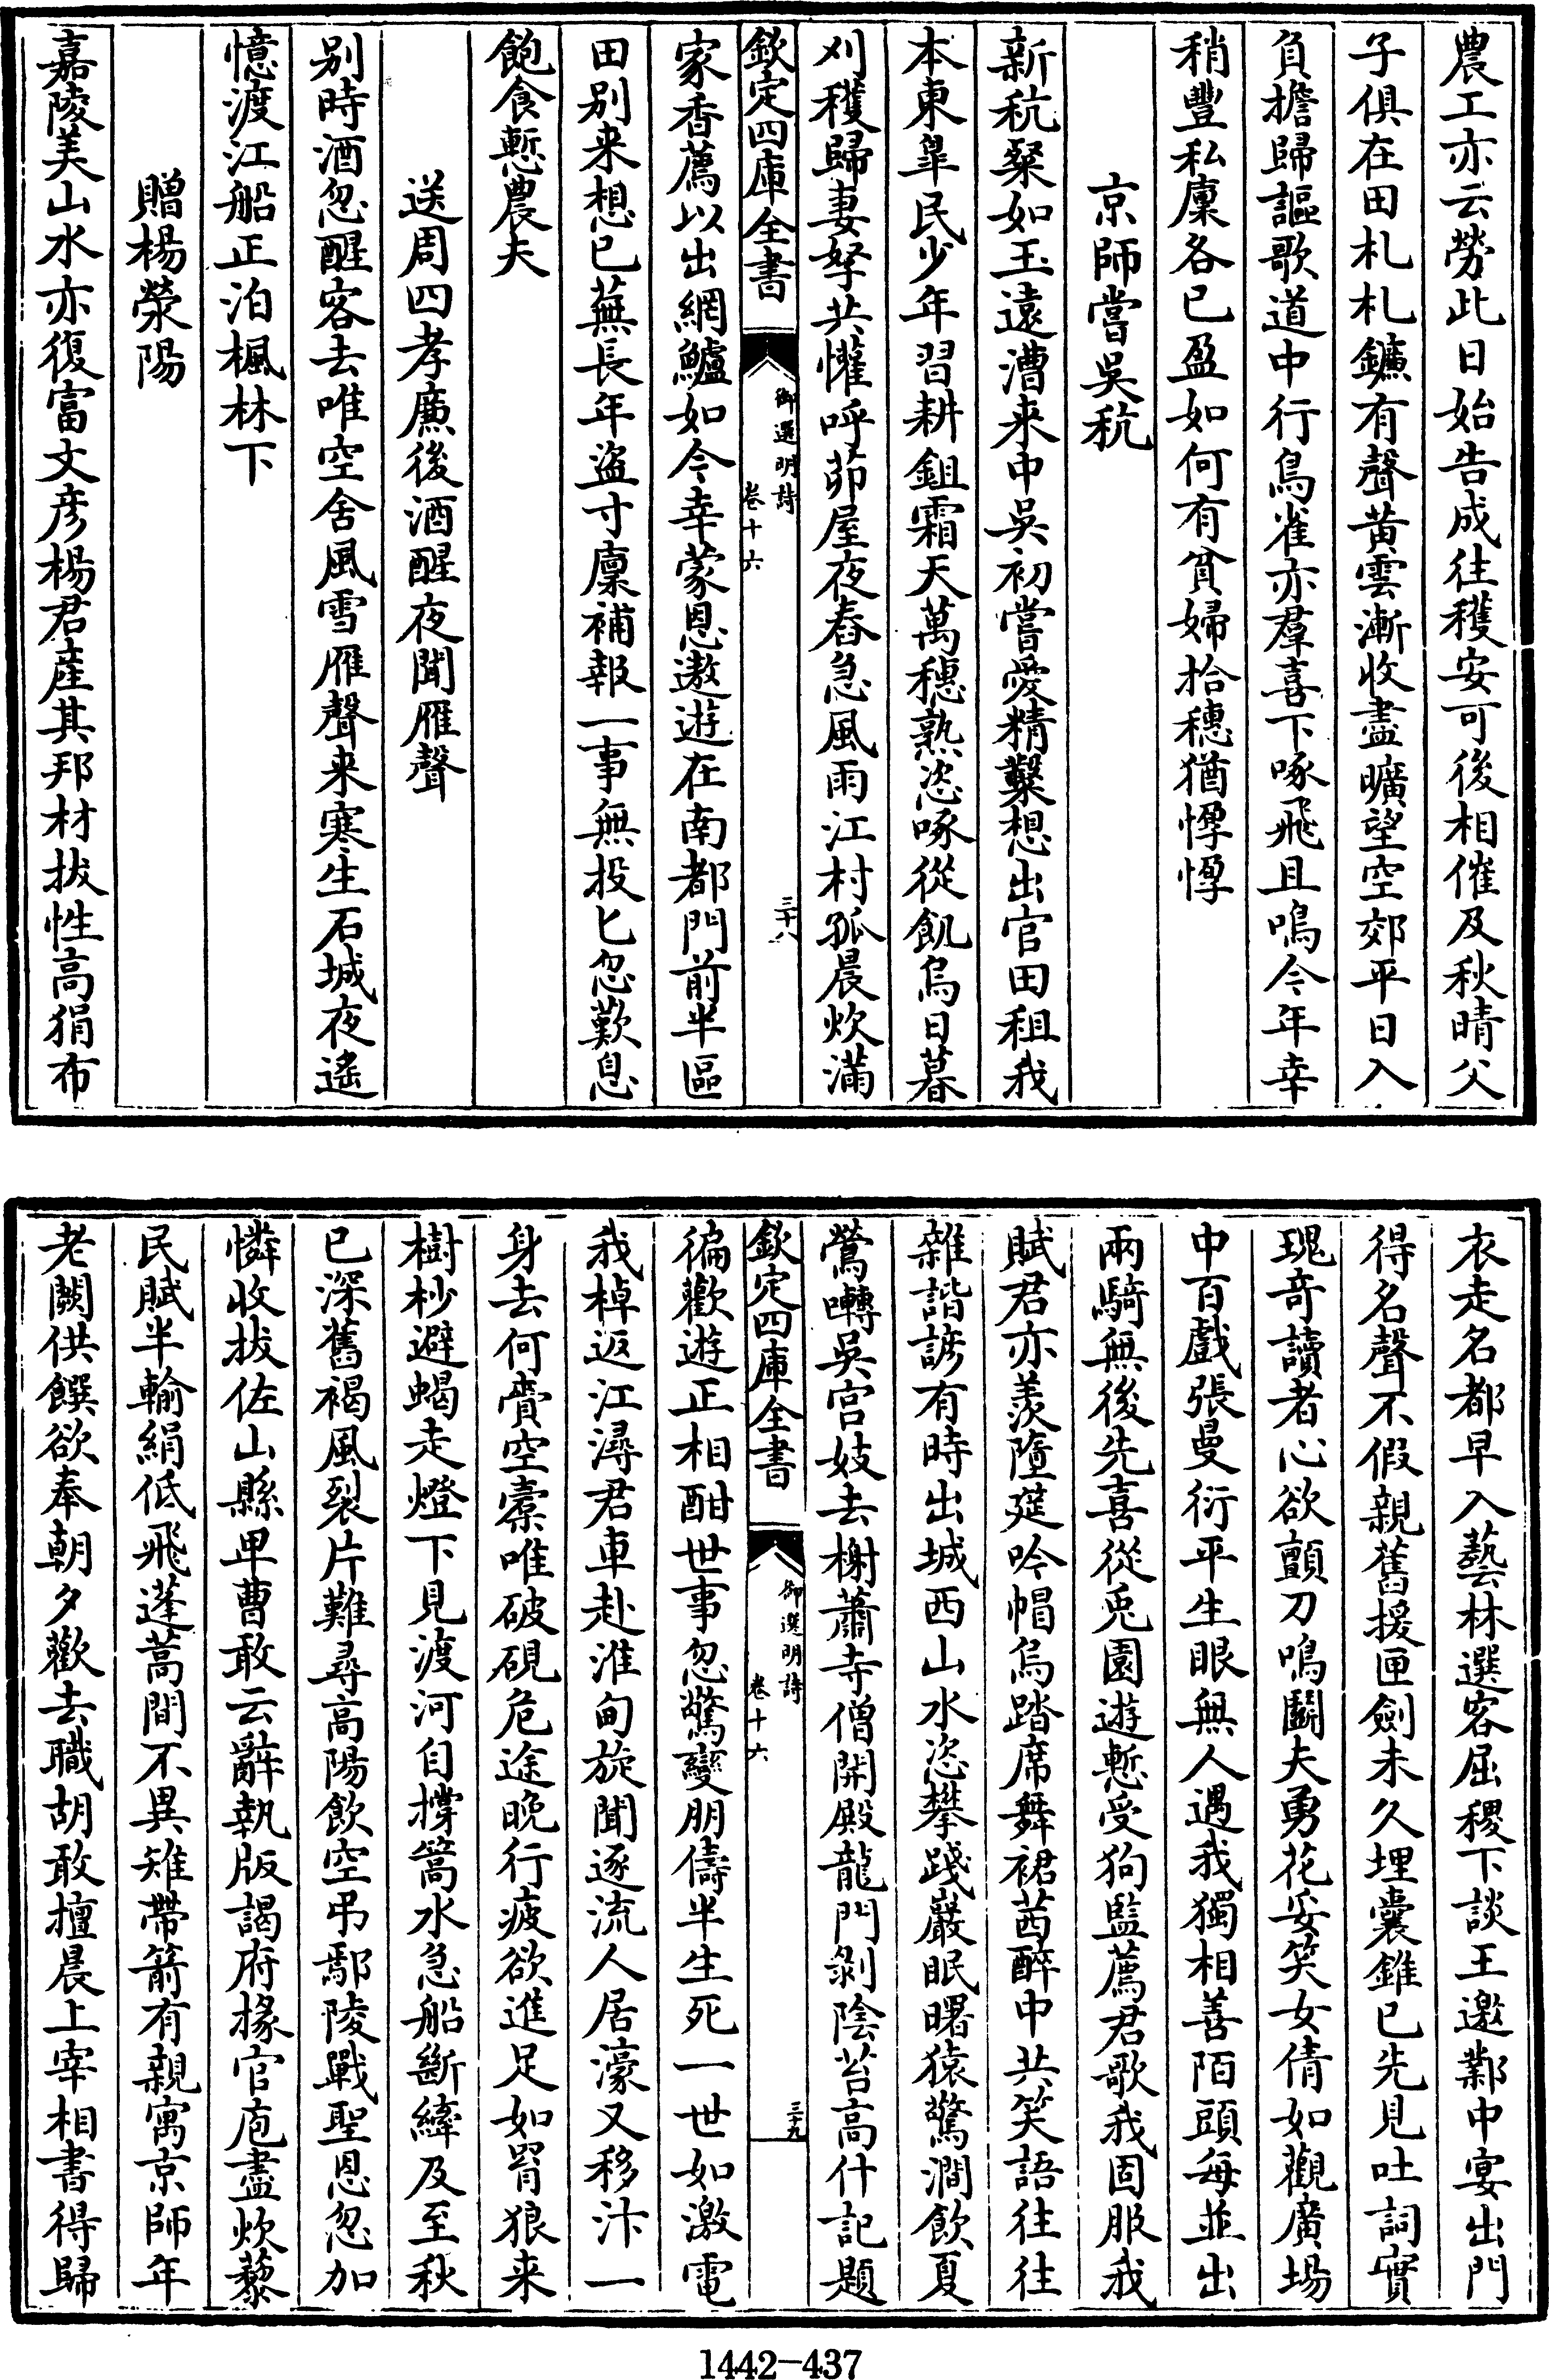 農工亦云勞此日始告成往穫安可後相催及秋晴父
子俱在田札札鐮有聲黃雲漸收盡曠望空郊平日入
負擔歸謳歌道中行鳥雀亦羣喜下啄飛且鳴今年幸
稍豐私廩各已盈如何有貧婦拾穗猶惸惸
京師嘗吳秔
新秔粲如玉遠漕来中吳初嘗愛精鑿想出官田租我
本東臯民少年習耕鉏霜天萬穗熟恣啄從飢烏日暮
刈穫歸妻孥共懽呼茆屋夜舂急風雨江村孤晨炊滿
欽定四庫全書
御選明詩
卷十六
三十八
家香薦以出網鱸如今幸蒙恩遨遊在南都門前半區
田别来想已蕪長年盜寸廩補報一事無投匕忽歎息
飽食慙農夫
送周四孝廉後酒醒夜聞雁聲
别時酒忽醒客去唯空舍風雪雁聲来寒生石城夜遙
憶渡江船正泊楓林下
贈楊滎陽
嘉陵美山水亦復富文彥楊君産其邦材拔性高狷布
衣走名都早入藝林選客屈稷下談王邀鄴中宴出門
得名聲不假親舊援匣劍未久埋囊錐已先見吐詞實
瑰奇讀者心欲顫刀鳴鬭夫勇花妥笑女倩如觀廣場
中百戲張曼衍平生眼無人遇我獨相善陌頭每並出
兩騎無後先喜從兎園遊慙受狗監薦君歌我固服我
賦君亦羨墮筵吟帽烏踏席舞裙茜醉中共笑語往往
雜諧諺有時出城西山水恣攀踐巖眠曙猿驚澗飲夏
鶯囀吳宫妓去榭蕭寺僧開殿龍門剝陰苔高什記題
欽定四庫全書
御選明詩
卷十六
三十九
徧歡遊正相酣世事忽驚變朋儔半生死一世如激電
我棹返江潯君車赴淮甸旋聞逐流人居濠又移汴一
身去何賫空橐唯破硯危途晚行疲欲進足如罥狼来
樹杪避蝎走燈下見渡河自撐篙水急船斷縴及至秋
已深舊褐風裂片難尋高陽飲空弔鄢陵戰聖恩忽加
憐收拔佐山縣卑曹敢云辭執版謁府掾官庖盡炊藜
民賦半輸絹低飛蓬蒿間不異雉帶箭有親寓京師年
老闕供饌欲奉朝夕歡去職胡敢擅晨上宰相書得歸
1442-437